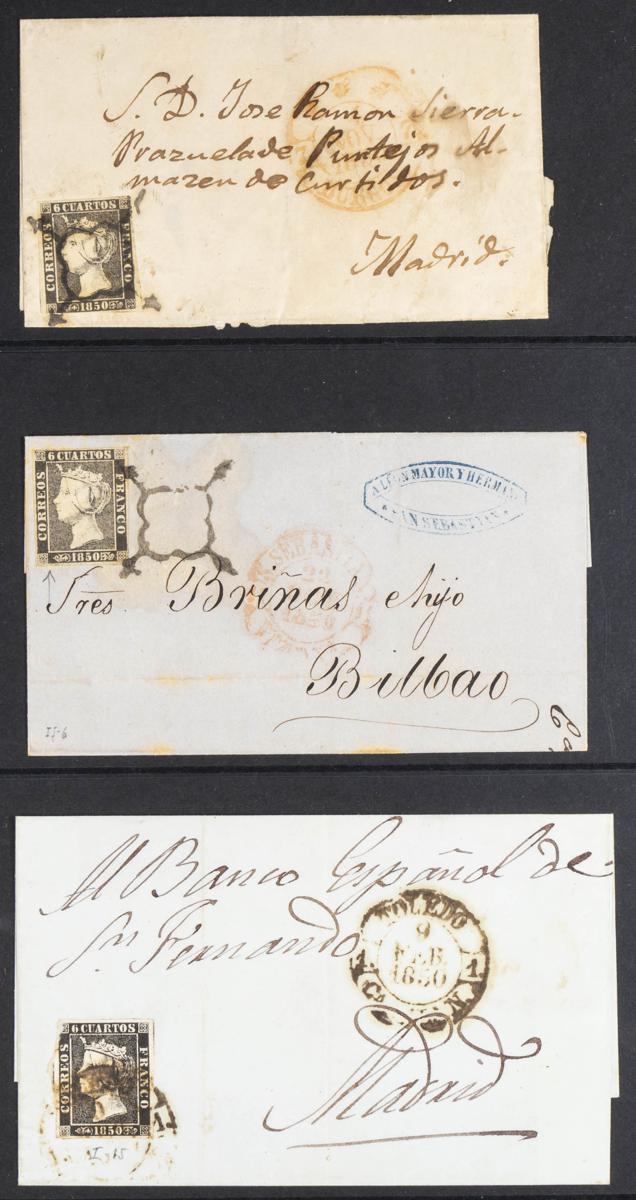 S. D. Jose Ramon Sierra.
Prazuelade Puntejos Al-
mazen de Curtidos.
Madrid.
6 CUARTOS
CORREOS
FRANCO
1850
6 CUARTOS
CORREOS
FRANCO
1850
MAYOR Y HERMAN
SAN SEBASTIAN
SEBASTIA
22
1850
Sres Briñas e hijo
Bilbao
Al Banco Español de
Sn Fernando
TOLEDO
9
FEB.
1850
Madrid
6 CUARTOS
CORREOS
FRANCO
1850